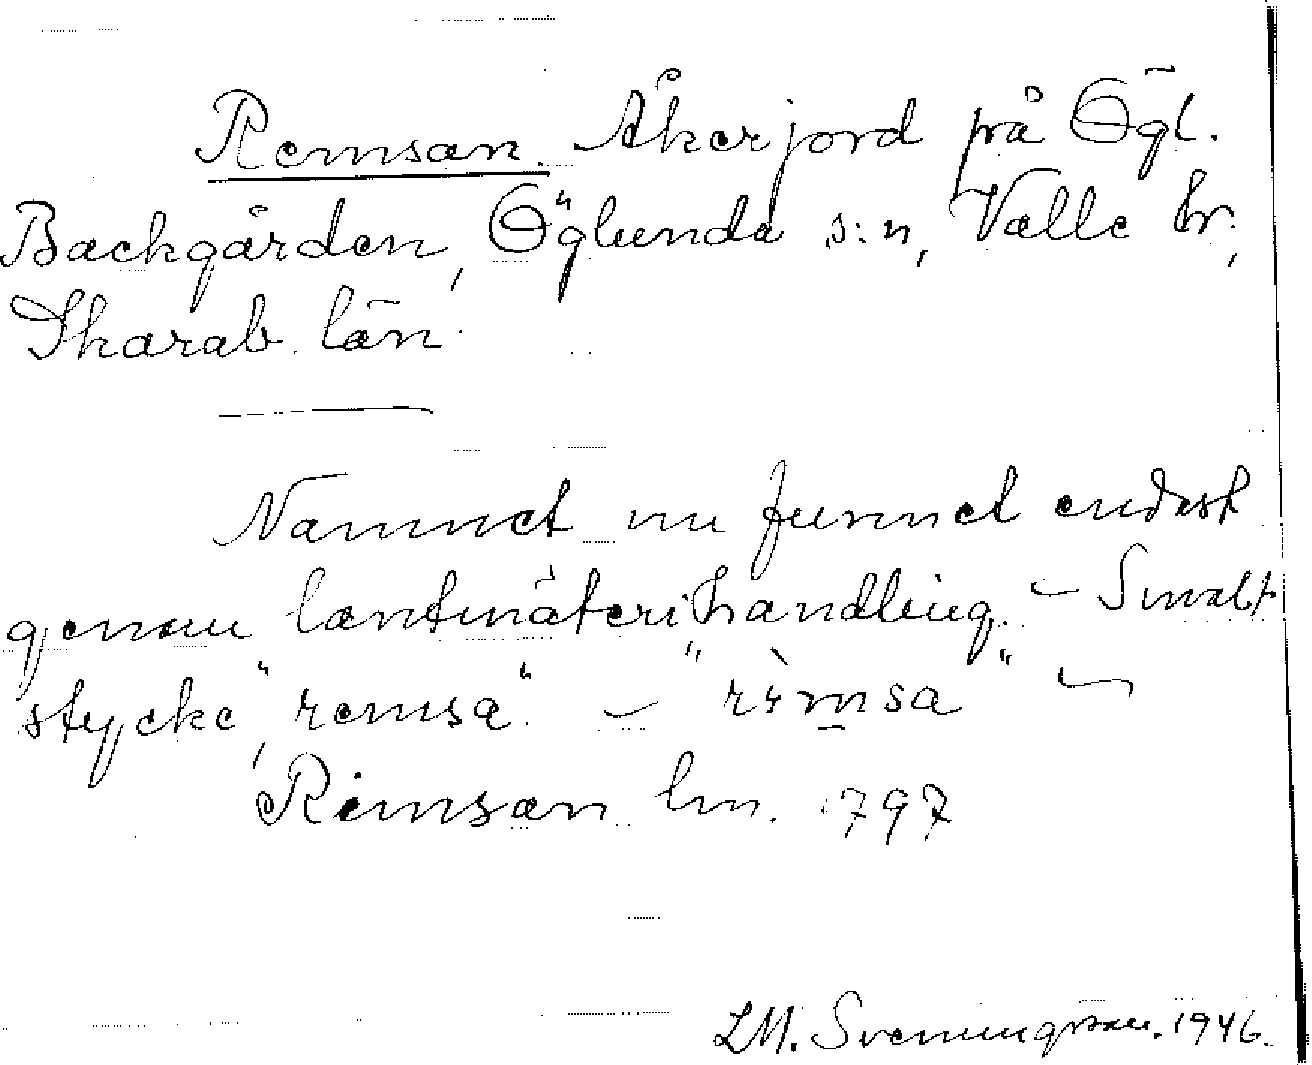 Remsan. Åkerjord på Ögl.
Backgården, Öglunda s:n, Valle hr,
Skarab. län.
Namnet nu funnet endast
genom lantmäterihandling. – Smalt
stycke, "remsa". – "rìmsa" –
Rimsan lm. 1797
LM. Svenungsson. 1946.